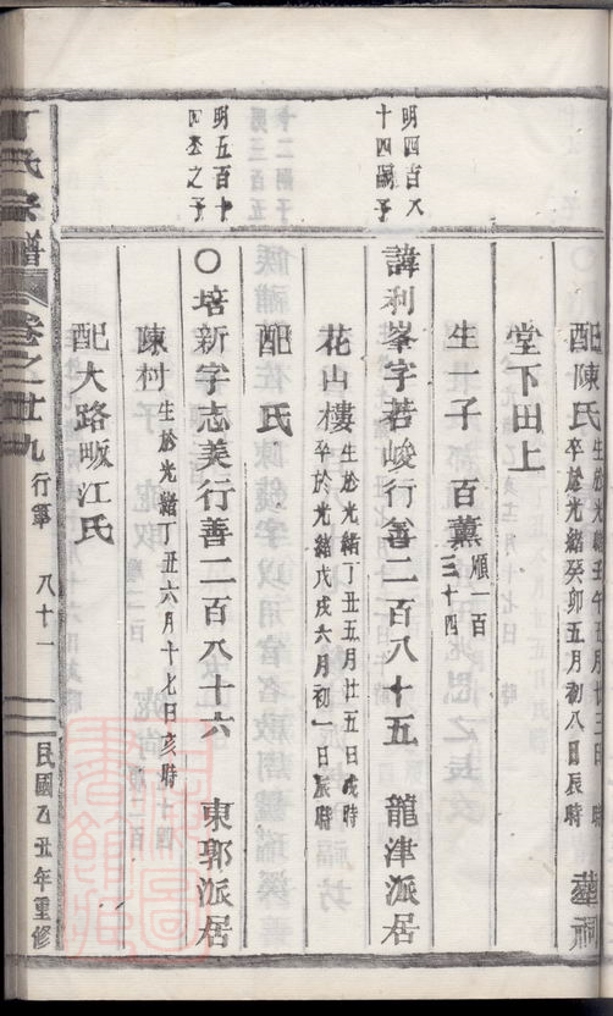 配陳氏 生於光緒壬午五月廿三日 時
卒於光緒癸卯五月初八日辰時 葬祠
堂下田上
生一子 百薰 順一百
三十四
明四百八
十四嗣子
諱利峯字若峻行善二百八十五 龍津派居
花山樓 生於光緒丁丑五月廿五日戌時
卒於光緒戊戌六月初一日辰時
配 氏
明五百十
四丞之子
○培新字志美行善二百八十六 東郭派居
陳村 生於光緒丁丑六月十七日亥時
配大路畈江氏
丁氏宗譜 卷之廿九 行第 八十一 民國乙丑年重修